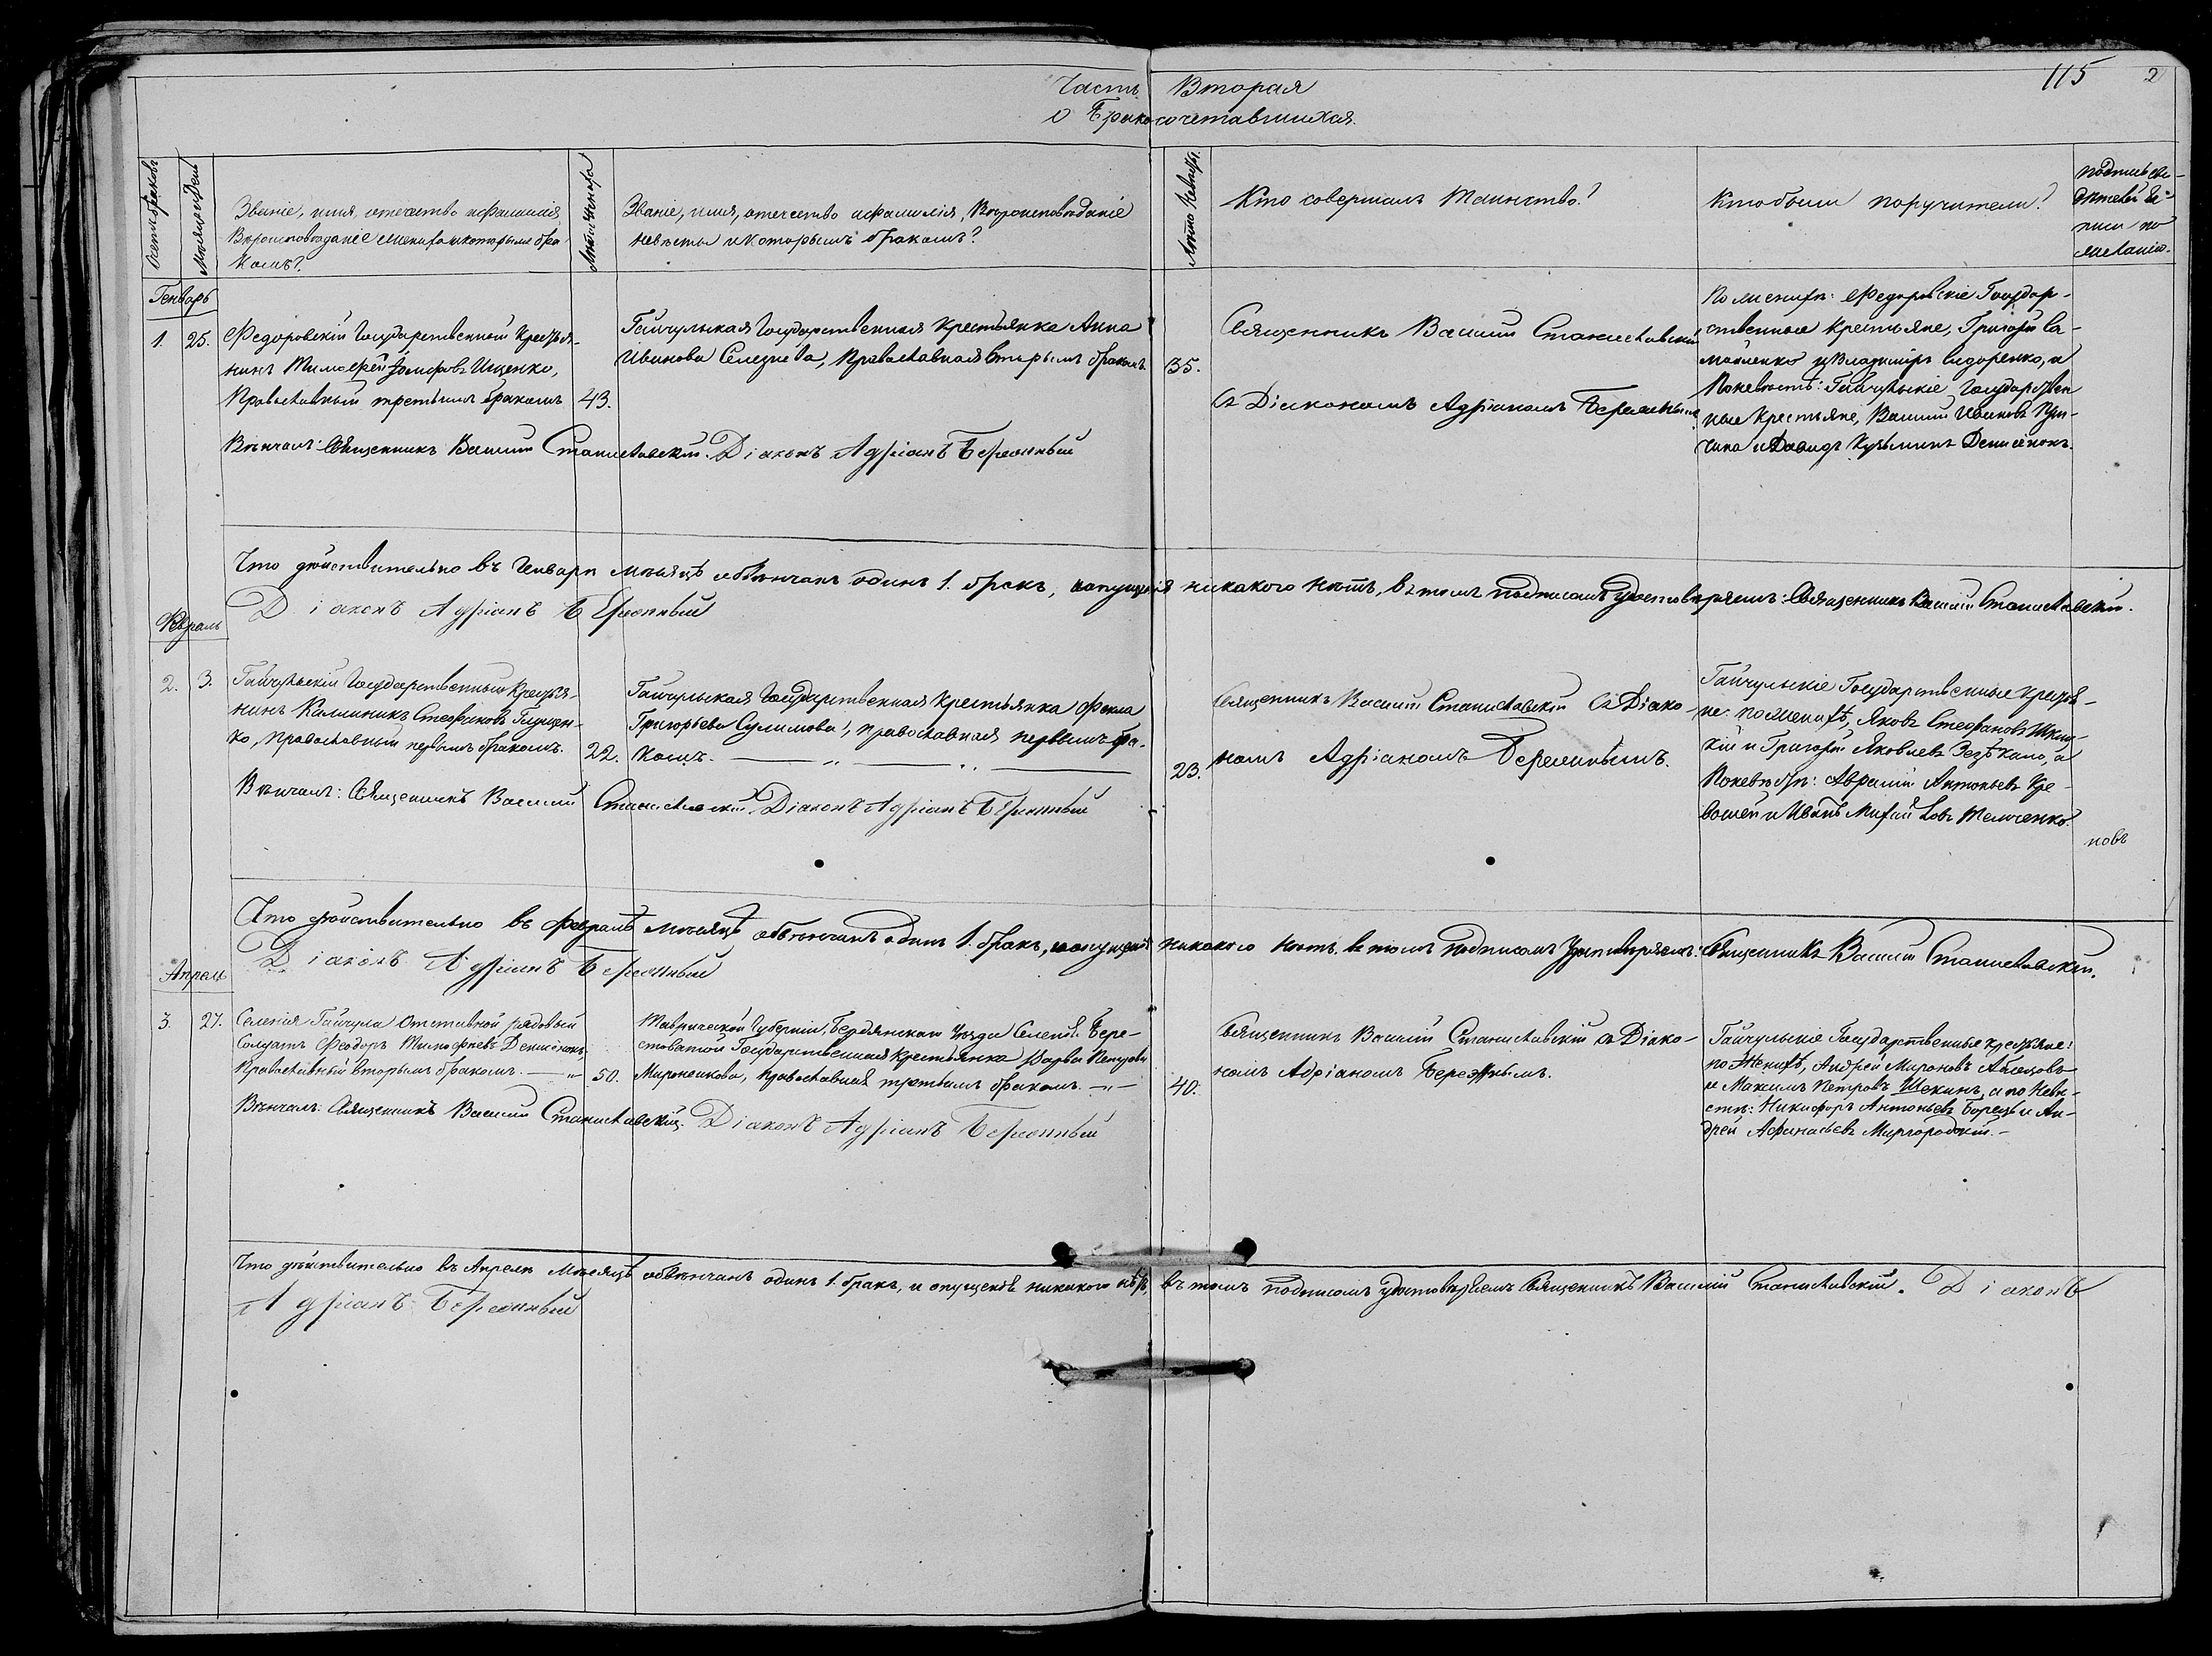 115 2
Часть Вторая
О Бракосочетавшихся.
Счетъ браковъ
Мѣсяцъ и День
Званіе, имя, отечество и фамилія,
Вѣроисповѣданіе жениха и которымъ бра-
комъ?
Лѣта жениха
Званіе, имя, отечество и фамилія, Вѣроисповѣданіе
невѣсты и которымъ бракомъ?
Лѣта Невѣсты.
Кто совершалъ Таинство?
Кто были поручители?
Подпись сви-
дѣтелей за-
писи по
желанію.
Генварь
1. 25.
Федоровскій Государственный Крестья-
нинъ Тимофей Ищенко,
Православный третьимъ бракомъ
43.
Гайчульская Государственная Крестьянка Анна
Иванова Селезнева, Православная вторымъ бракомъ
35.
Священникъ Василій Станиславскій
съ Діакономъ Адріаномъ Бережнымъ
По женихѣ: Федоровскіе Государ-
ственные крестьяне, Григорій Са-
мойленко и Владиміръ Сидоренко, а
По невѣстѣ: Гайчульскіе Государствен
ные Крестьяне, Василій Ивановъ
и Давидъ Кузьминъ Денисенокъ.
Вѣнчалъ: Священникъ Василій Станиславскій. Діаконъ Адріанъ Бережный
Что дѣйствительно въ Генварѣ мѣсяцѣ обвѣнчанъ одинъ 1. бракъ, и опущенія никакого нѣтъ, въ томъ подписомъ удостовѣряемъ: Священникъ Василій Станиславскій.
Діаконъ Адріанъ Бережный
Февраль
2. 3.
Гайчульскій Государственный Крестья-
нинъ Калиникъ Стефановъ Глущен-
ко, православный первымъ бракомъ.
22.
Гайчульская Государственная Крестьянка Фекла
Григорьева Сулимова, православная первымъ бра-
комъ. — „ — „ —
23.
Священникъ Василій Станиславскій съ Діако-
номъ Адріаномъ Бережнымъ.
Гайчульскіе Государственные крестья-
не: по женихѣ, Яковъ Стефановъ
и Григорій Яковлевъ а
По невѣстѣ: Аврамій Антоньевъ Кре-
вошей и Иванъ Михайловъ Тельченко.
новъ
Вѣнчалъ: Священникъ Василій Станиславскій. Діаконъ Адріанъ Бережный
Что дѣйствительно въ Февралѣ мѣсяцѣ обвѣнчанъ одинъ 1. бракъ, и опущенія никакого нѣтъ. въ томъ подписомъ удостовѣряемъ: Священникъ Василій Станиславскій.
Діаконъ Адріанъ Бережный
Апрель
3. 27.
Селенія Гайчула Отставной рядовый
Солдатъ Феодоръ Тимофѣевъ Денисенокъ
Православный вторымъ бракомъ. — „
50.
Таврической Губерніи, Бердянскаго Уѣзда Селенія Бере-
стоватой Государственная Крестьянка Варва
Мироненкова, православная третьимъ бракомъ. — „ —
40.
Священникъ Василій Станиславскій съ Діако-
номъ Адріаномъ Бережнымъ.
Гайчульскіе Государственные крестьяне:
по Женихѣ, Андрей Мироновъ
и Максимъ Петровъ Шекинъ, а по Невѣ-
стѣ: Никифоръ Антоньевъ Борецъ и Ан-
дрей Афанасьевъ Миргородскій. —
Вѣнчалъ: Священникъ Василій Станиславскій. Діаконъ Адріанъ Бережный
Что дѣйствительно въ Апрелѣ Мѣсяцѣ обвѣнчанъ одинъ 1. бракъ, и опущенія никакого нѣтъ, въ томъ подписомъ удостовѣряемъ Священникъ Василій Станиславскій. Діаконъ
Адріанъ Бережный